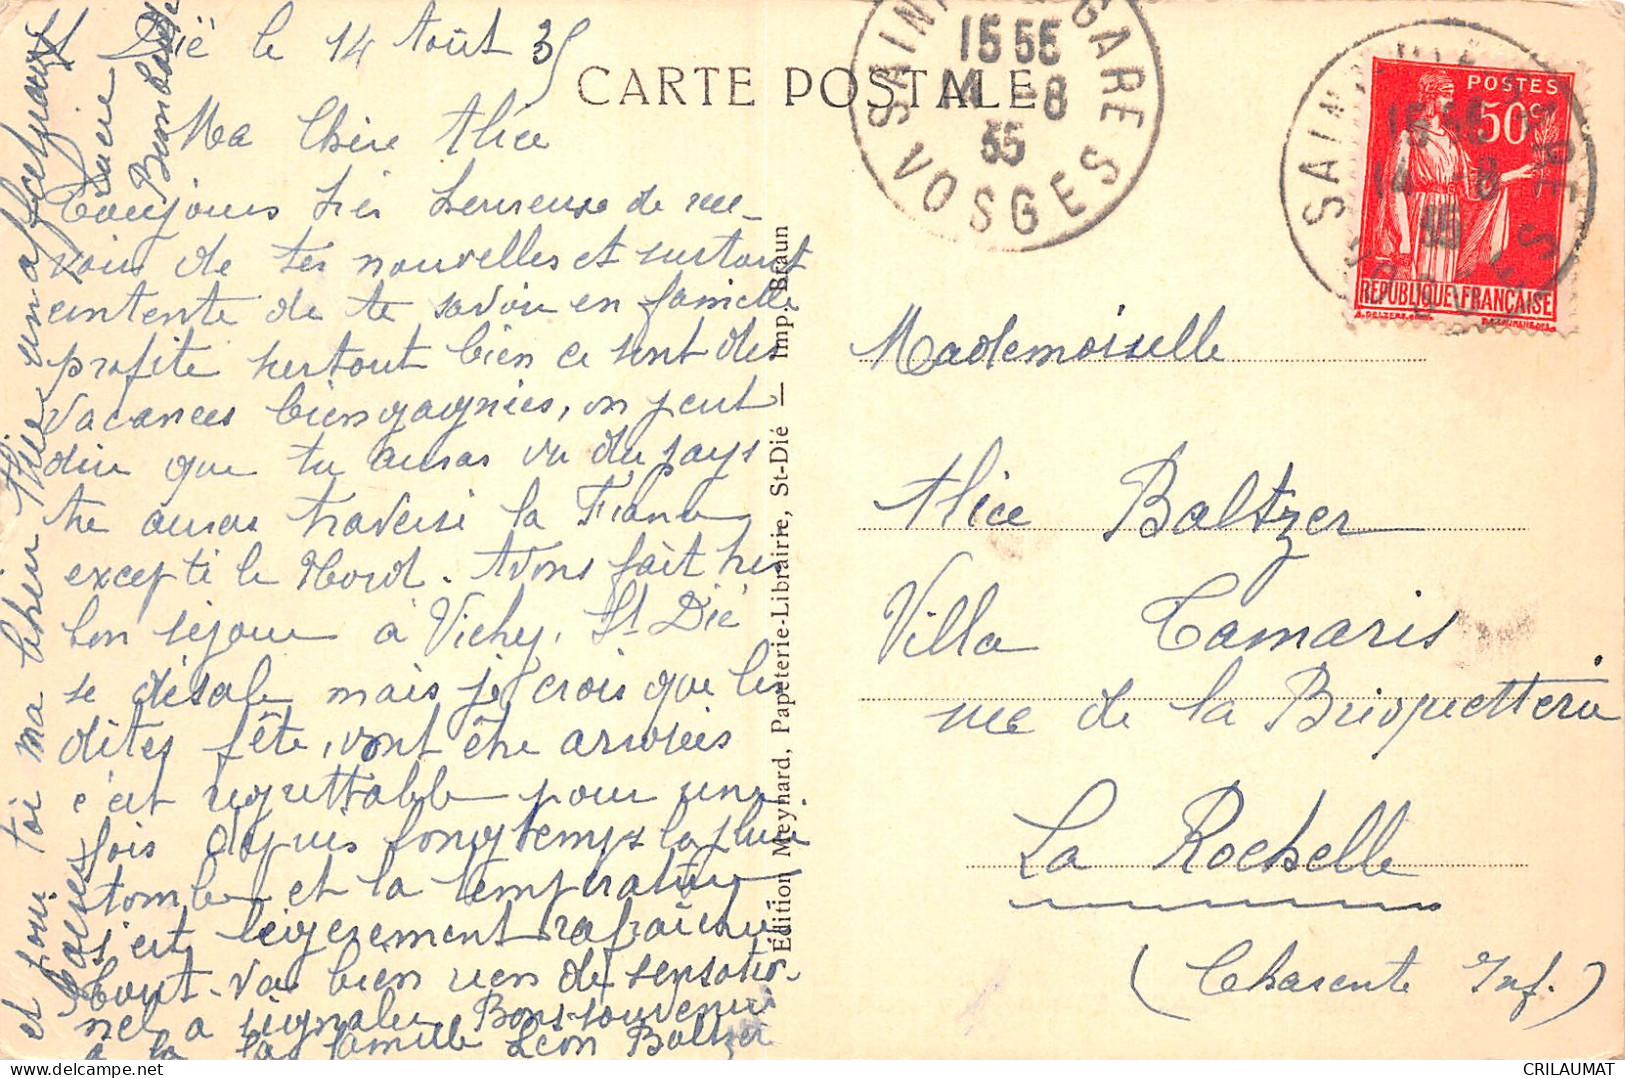 St Dié le 14 Août 35
Ma Chère Alice
Toujours très heureuse de rece-
voir de tes nouvelles et surtout
contente de te savoir en famille
profite surtout bien ce sont des
vacances bien gagnées, on peut
dire que tu auras vu du pays
tu auras traversé la France
excepté le Nord. Avons fait très
bon séjour à Vichy. St Dié
se désole mais je crois que les
dites fête, vont être arrosées
c'est regrettable pour une
fois depuis longtemps la pluie
tombe et la température
s'est légèrement rafraîchie
Tout va bien rien de sensation-
nel à signaler Bons souvenirs
à la famille Léon Baltzer
et pour toi ma chère Alice un affectueux
baisers
Lucie
CARTE POSTALE
Édition Meynard, Papeterie-Librairie, St-Dié — Imp. Braun
SAINT GARE
15 55
14 -8
35
VOSGES
POSTES
50c
REPUBLIQUE FRANÇAISE
SAIN GARE
15 55
14 -8
35
VOSGES
Mademoiselle
Alice Baltzer
Villa Tamaris
rue de la Briquetterie
La Rochelle
(Charente Inf.)
CRILAUMAT